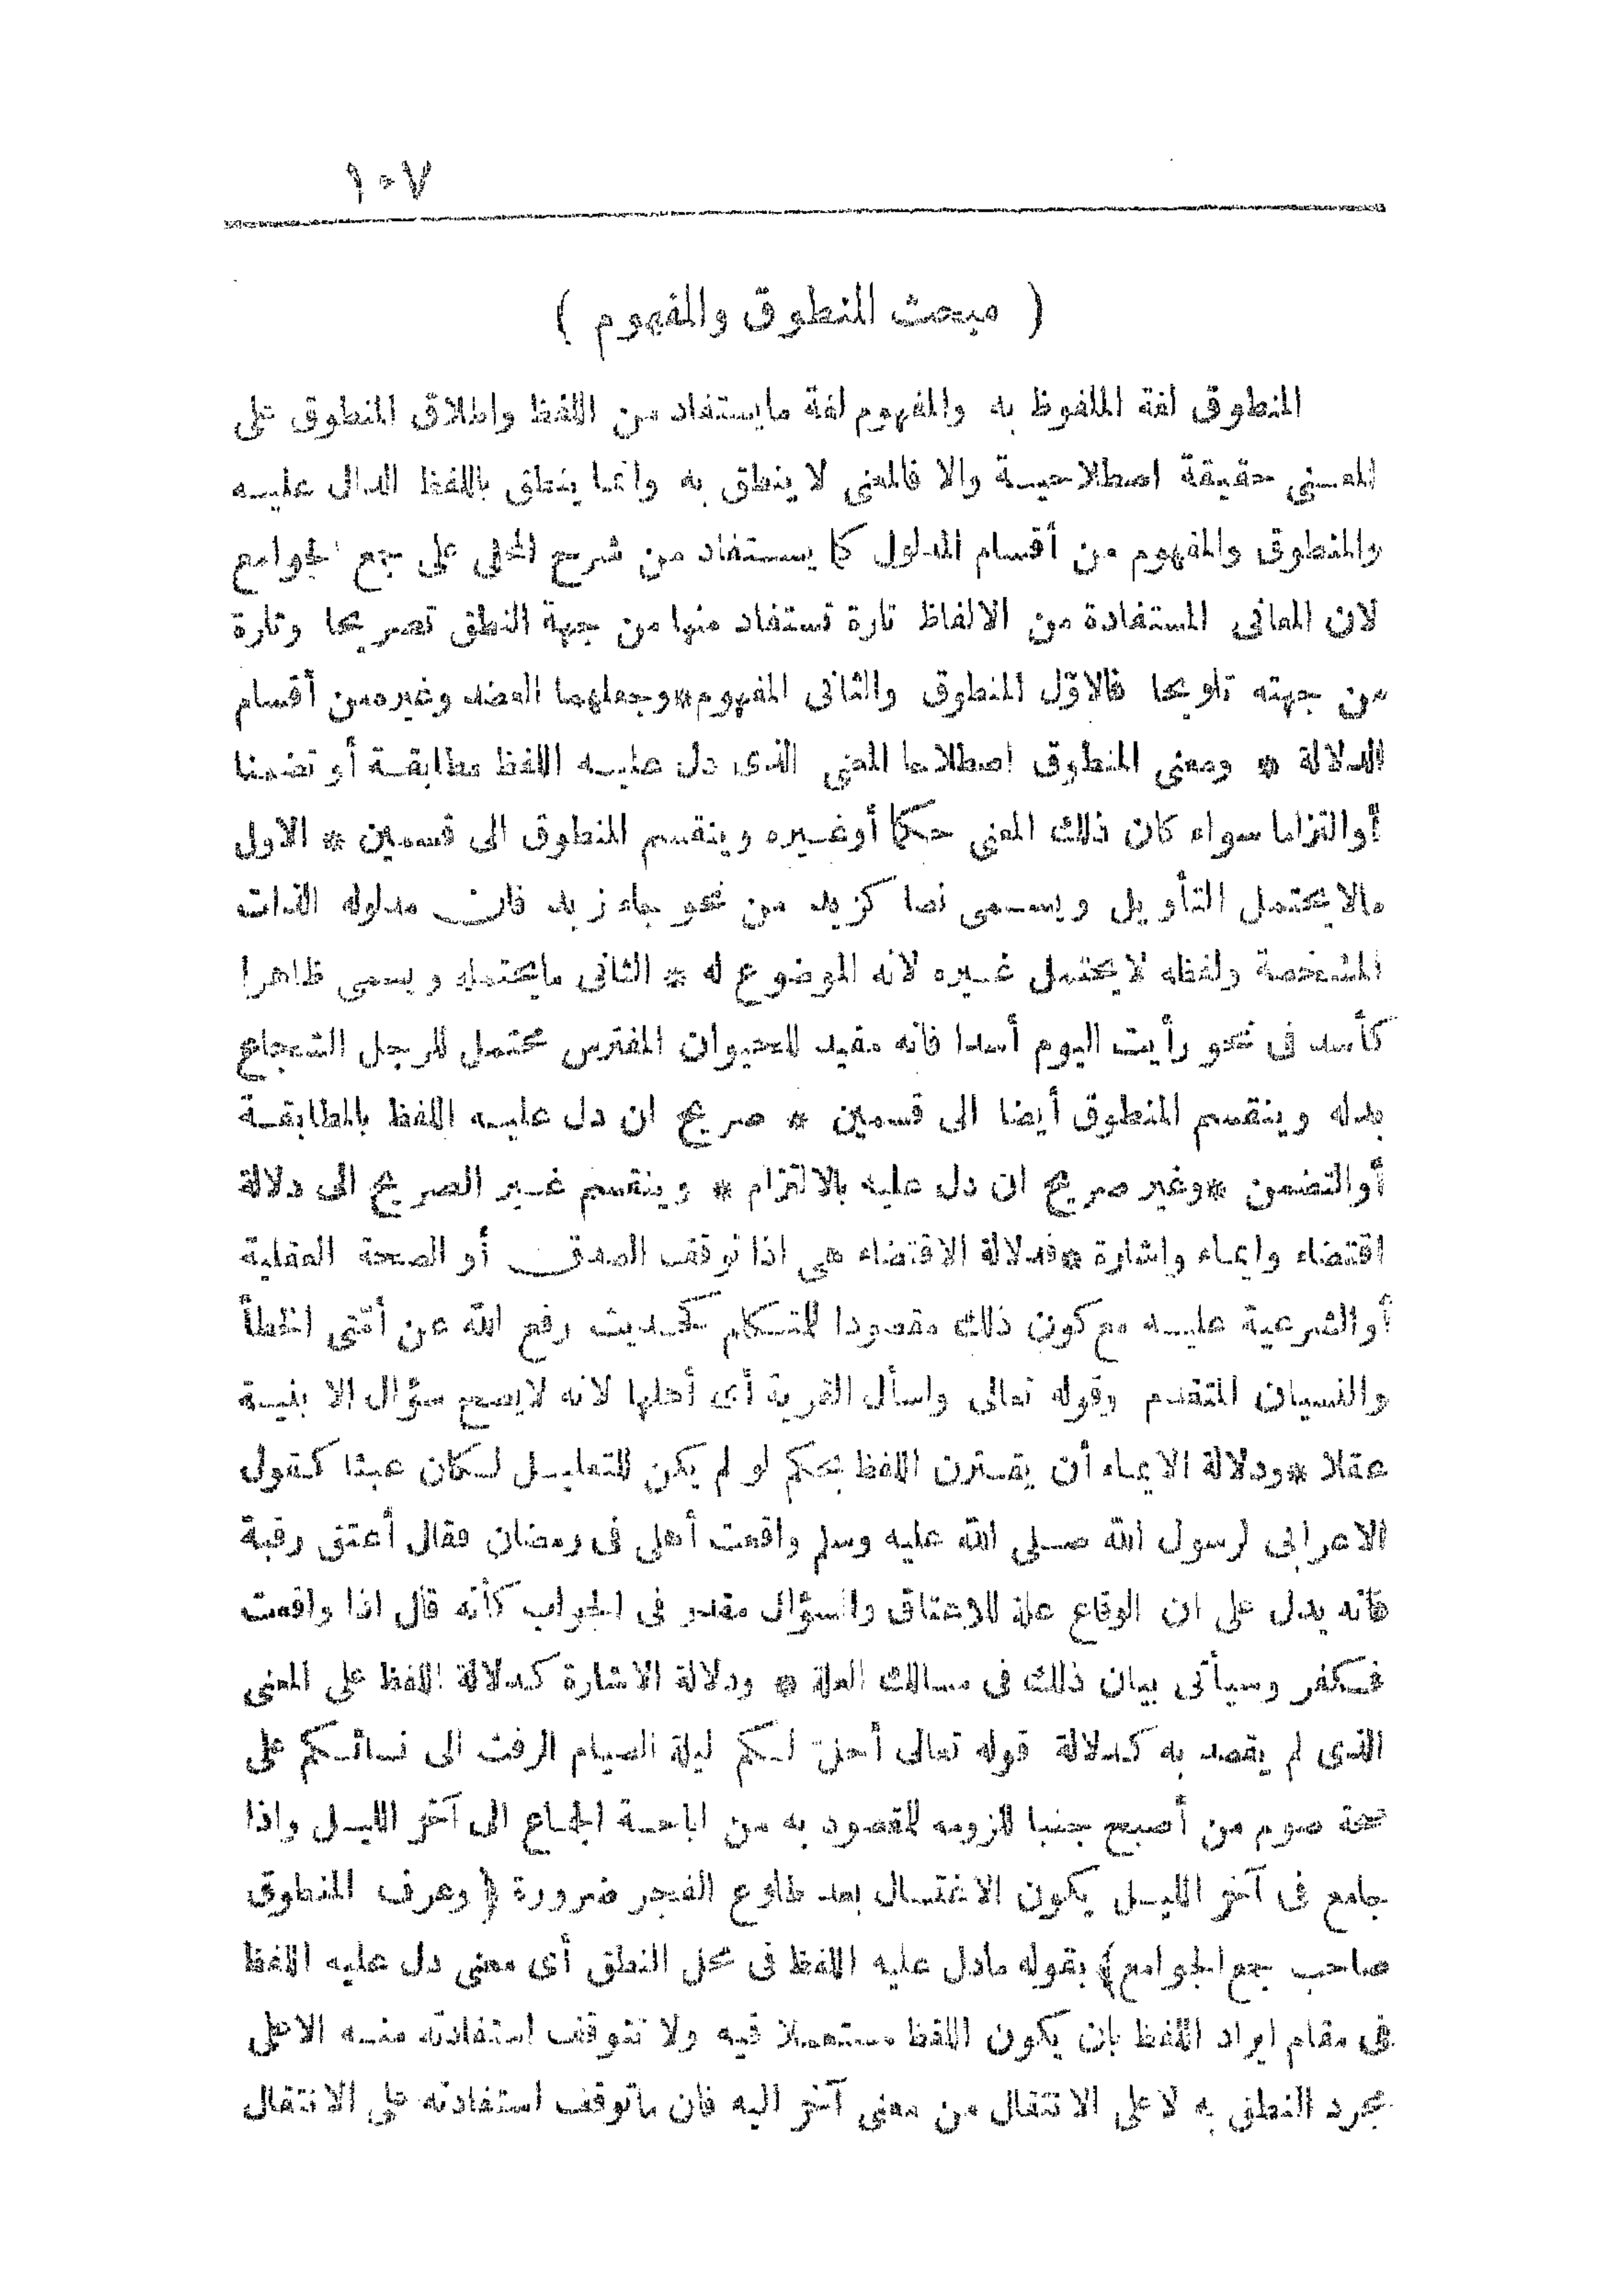 ١٠٧
( مبحث المنطوق والمفهوم )
المنطوق لغة الملفوظ به والمفهوم لغة مايستفاد من اللفظ واطلاق المنطوق على
المعنى حقيقة اصطلاحية والا فالمعنى لا ينطق به وانما ينطق باللفظ الدال عليه
والمنطوق والمفهوم من أقسام المدلول كما يستفاد من شرح المحلى على جمع الجوامع
لان المعانى المستفادة من الالفاظ تارة تستفاد منها من جهة النطق تصريحا وتارة
من جهته تلويحا فالاوّل المنطوق والثانى المفهوم * وجعلهما العضد وغيره من أقسام
الدلالة * ومعنى المنطوق اصطلاحا المعنى الذى دل عليه اللفظ مطابقة أو تضمنا
أو التزاما سواء كان ذلك المعنى حكما أو غيره وينقسم المنطوق الى قسمين * الاول
مالا يحتمل التأويل ويسمى نصا كزيد من نحو جاء زيد فان مدلوله الذات
المشخصة ولفظه لا يحتمل غيره لانه الموضوع له * الثانى مايحتمله ويسمى ظاهرا
كأسد فى نحو رأيت اليوم أسدا فانه مفيد للحيوان المفترس محتمل للرجل الشجاع
بدله وينقسم المنطوق أيضا الى قسمين * صريح ان دل عليه اللفظ بالمطابقة
أو التضمن * وغير صريح ان دل عليه بالالتزام * وينقسم غير الصريح الى دلالة
اقتضاء وايماء واشارة * فدلالة الاقتضاء هى اذا توقف الصدق أو الصحة العقلية
أو الشرعية عليه مع كون ذلك مقصودا للمتكلم كحديث رفع الله عن أمّتى الخطأ
والنسيان المتقدم وقوله تعالى واسأل القرية أى أهلها لانه لايصح سؤال الابنية
عقلا * ودلالة الايماء أن يقترن اللفظ بحكم لو لم يكن للتعليل لكان عبثا كقول
الاعرابى لرسول الله صلى الله عليه وسلم واقعت أهلى فى رمضان فقال أعتق رقبة
فانه يدل على ان الوقاع علة للاعتاق والسؤال مقدر فى الجواب كأنه قال اذا واقعت
فكفر وسيأتى بيان ذلك فى مسالك العلة * ودلالة الاشارة كدلالة اللفظ على المعنى
الذى لم يقصد به كدلالة قوله تعالى أحل لكم ليلة الصيام الرفث الى نسائكم على
صحة صوم من أصبح جنبا للزومه للمقصود به من اباحة الجماع الى آخر الليل واذا
جامع فى آخر الليل يكون الاغتسال بعد طلوع الفجر ضرورة ( وعرف المنطوق
صاحب جمع الجوامع ) بقوله مادل عليه اللفظ فى محل النطق أى معنى دل عليه اللفظ
فى مقام ايراد اللفظ بان يكون اللفظ مستعملا فيه ولا تتوقف استفادته منه الاعلى
مجرد النطق به لا على الانتقال من معنى آخر اليه فان ماتوقف استفادته على الانتقال